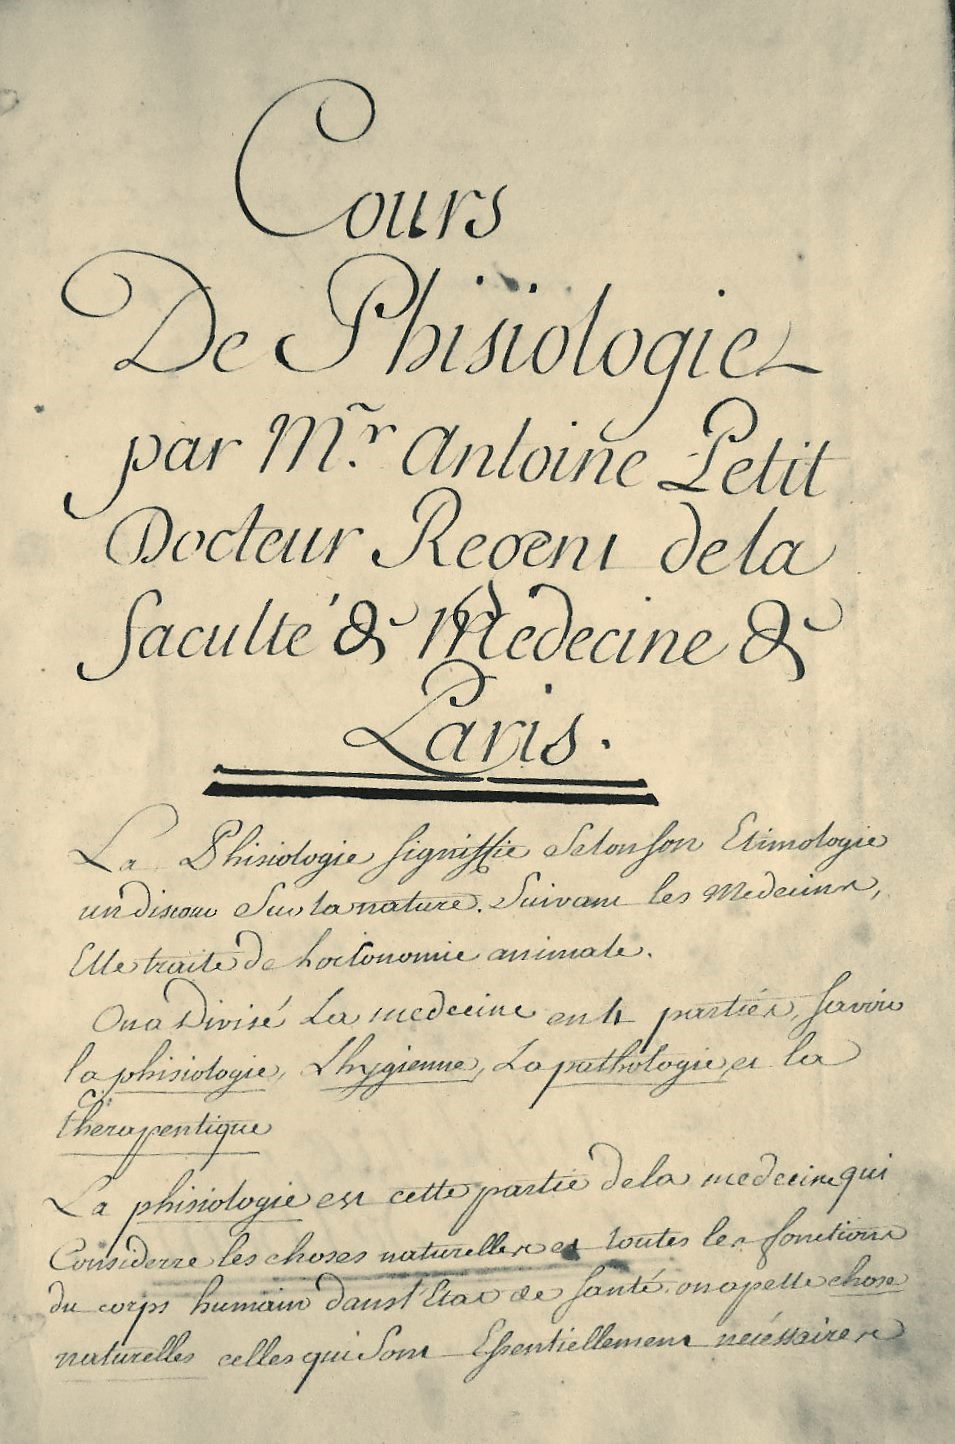 Cours
De Phisiologie
par Mr. Antoine Petit
Docteur Regent de la
faculté de Medecine de
Paris.
La Phisiologie signiffie selon son Etimologie
un discour sur la nature. Suivant les Medecins,
Elle traite de l'oeconomie animale.
On a Divisé La medecine en 4 parties, savoir
la phisiologie, L'hygienne, La pathologie, et la
therapentique
La phisiologie est cette partie de la medecine qui
Considerre les choses naturelles et toutes les fonctions
du corps humain dans l'Etat de santé. on apelle chose
naturelles celles qui sont Essentiellement nécéssaires